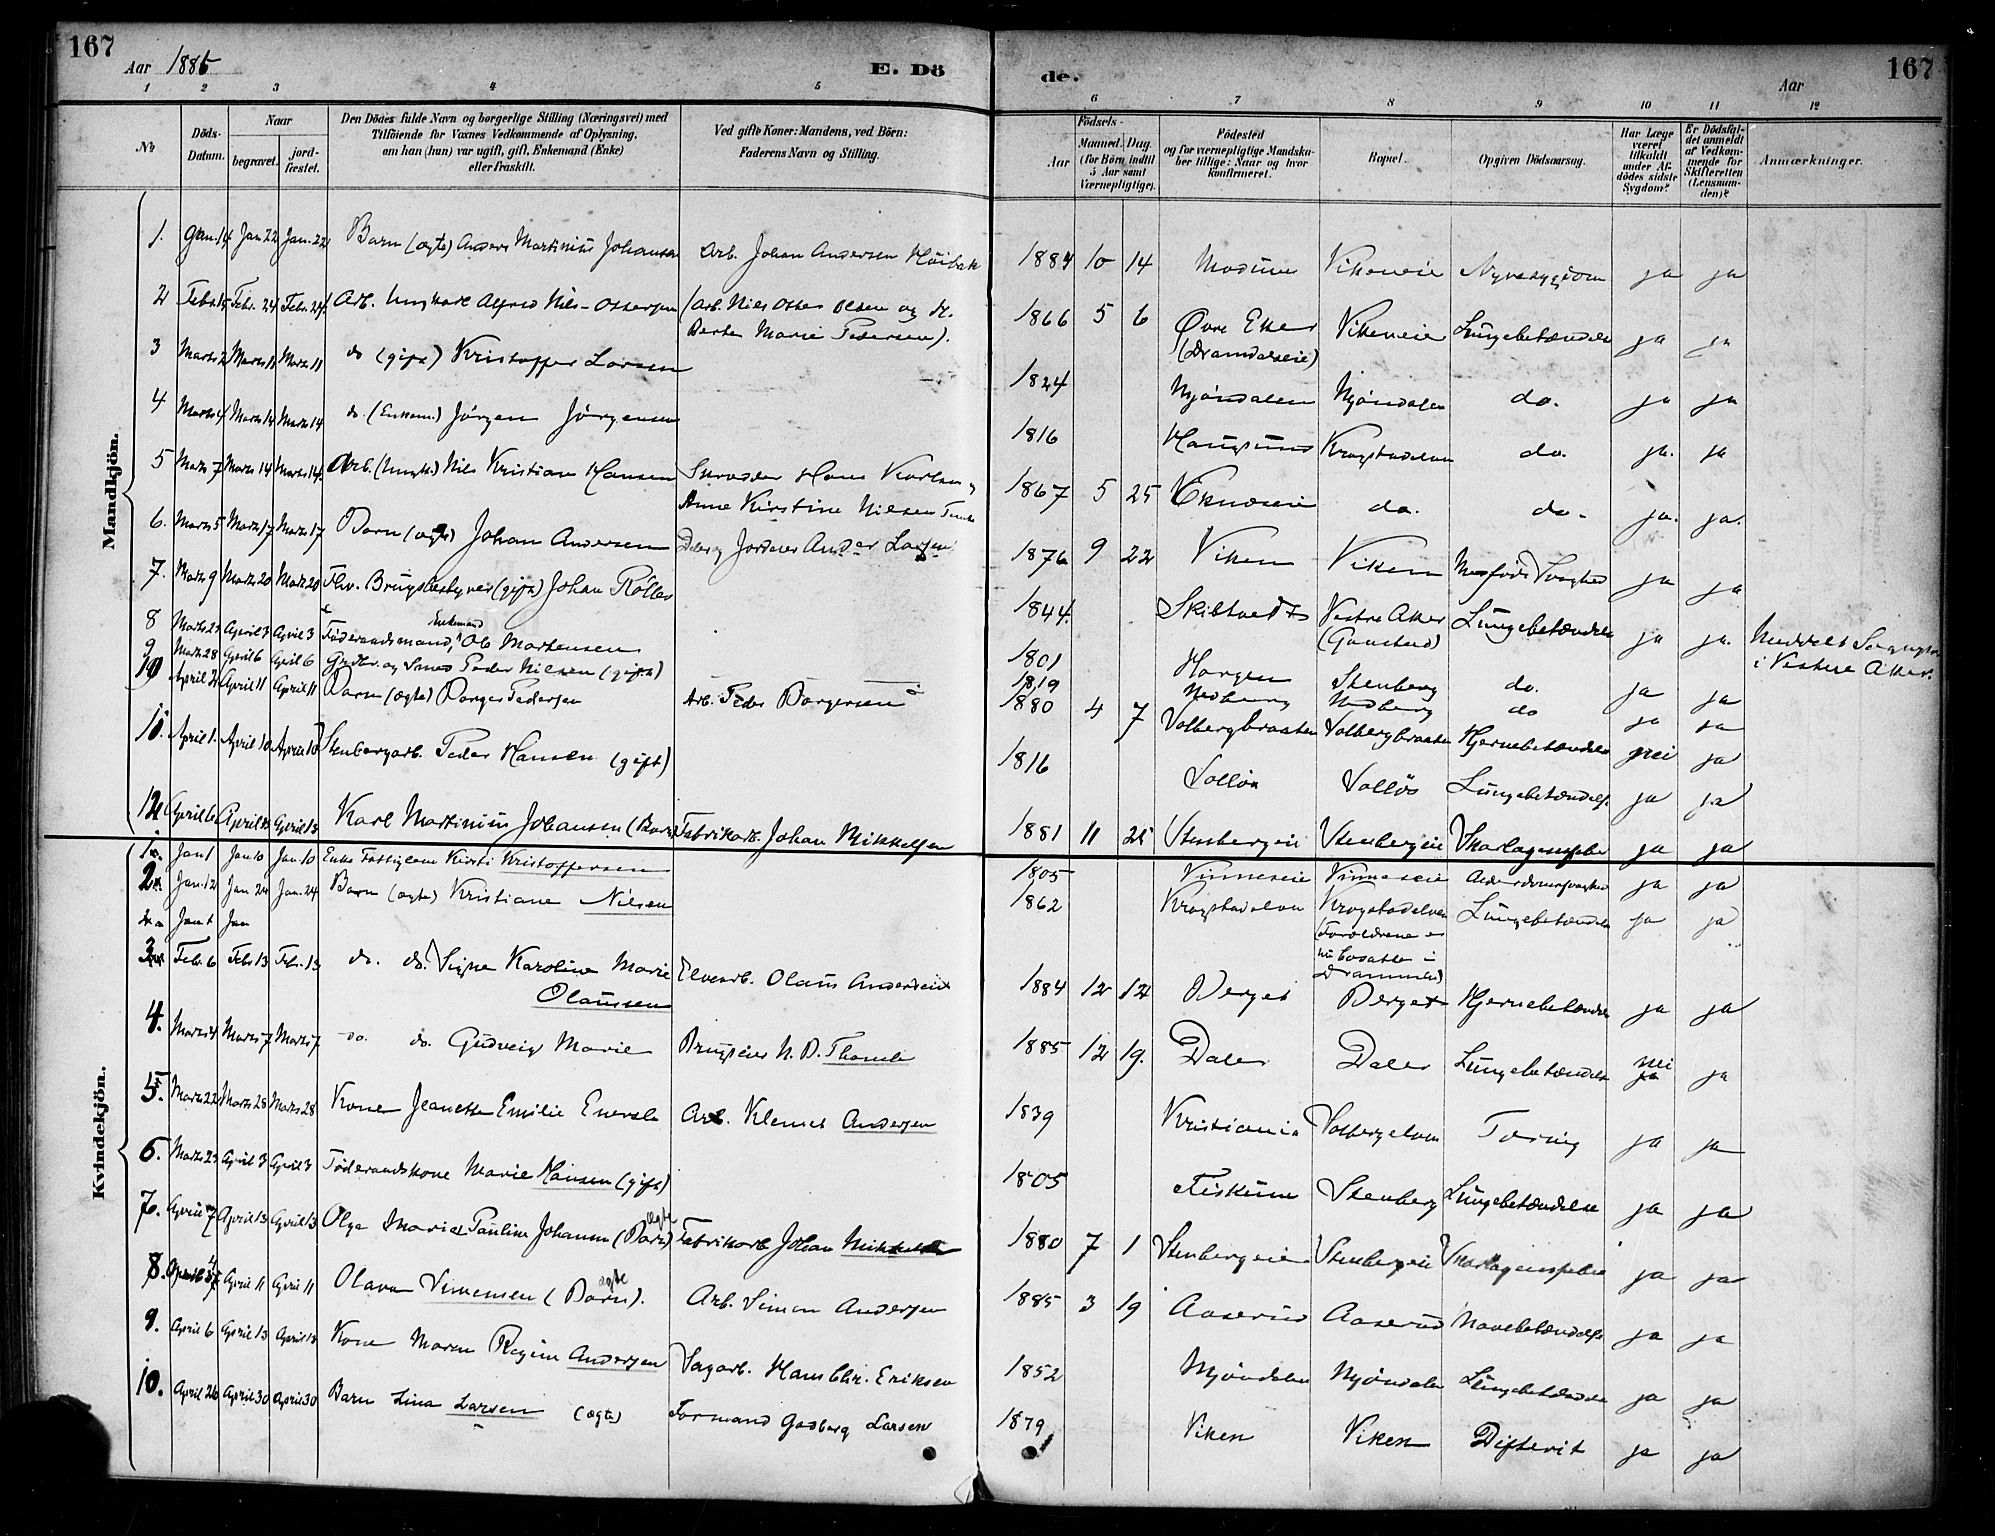 167
Aar 1886
E. Dö
de.
Aar
167
1 2 3 4 5 6 7 8 9 10 11 12
No
Döds-Datum.
Naar
begravet.
jord-fæstet.
Den Dödes fulde Navn og borgerlige Stilling (Næringsvei) med
Tilföiende for Voxnes Vedkommende af Oplysning,
om han (hun) var ugift, gift, Enkemand (Enke)
eller fraskilt.
Ved gifte Koner: Mandens, ved Börn:
Faderens Navn og Stilling.
Födsels-
Aar
Maaned. Dag.
(for Börn indtil
5 Aar samt
Værnepligtige).
Födested
og for værnepligtige Mandska-
ber tillige: Naar og hvor
konfirmeret.
Bopæl.
Opgiven Dödsaarsag.
Har Læge
været
tilkaldt
under Af-
dödes sidste
Sygdom?
Er Dödsfal-
det anmeldt
af Vedkom-
mende for
Skifteretten
(Lensman-
den)?
Anmærkninger.
Mandkjön.
1. Jan. 14 Jan 22 Jan. 22 Barn (ægte) Anders Martinius Johansen Arb. Johan Andersen 1884 10 14 Modum Vikeneie ja ja
2 Febr. 15 Febr. 24 Febr. 24 Arb. Ungkarl Alfred Nils-Ottersen (Arb. Niels Otter Olsen og H. 1866 5 6 Øvre Eker Vikeneie Lungebetændelse ja ja
Berte Marie Pedersen).
3 Marts 2 Marts 11 Marts 11 do (gift) Kristoffer Larsen 1824 Mjøndalen Mjøndalen do. ja ja
4 Marts 4 Marts 14 Marts 14 do. (Enkem.) Jörgen Jörgensen 1816 Haugsund Krogstadelven do. ja. ja
5 Marts 7 Marts 14 Marts 14. Arb. (Ungk.) Nils Kristian Hansen Skrædder Hans Karlsen 1867 5 25 do. do. ja. ja.
Anne Kirstine Nilsen
6. Marts 5 Marts 17 Marts 17 Barn (ægte) Johan Andersen Larsen 1876 9 22 Viken Viken ja ja
7. Marts 9 Marts 20 Marts 20 Fhv. Brugsbestyrer (gift) Johan 1844. Vestre Aker Lungebetændelse ja ja.
(Gaustad)
i Vestre Aker.
8 Marts 25 April 3 April 3 Föderaadsmand, Enkemand Ole Mortensen 1801 Horgen Stenberg do. ja ja
9 Marts 28 April 6 April 6 Grdbr. og Smed Peder Nilsen (gift) 1819 Nedberg Nedberg do ja ja
10 April 2 April 11 April 11 Barn (ægte) Borger Pedersen Arb. Peder Borgersen 1880 4 7 Solbergbraaten Solbergbraaten Hjernebetændelse nei ja
11. April 1. April 10 April 10 Stenbergarb. Peder Hansen (gift) 1816 Lungebetændelse ja ja
12 April 6 April 13 April 13 Karl Martinius Johansen (Barn) Fabrikarb. Johan Mikkelsen 1881 11 25 Stenbergeie Stenbergeie Skarlagensfeber ja ja
Kvindekjön.
1. Jan 1 Jan 10 Jan 10 Enke Fattiglem Kirsti Kristoffersen 1805 Vinneseie Vinneseie ja ja
2. Jan. 12 Jan 24 Jan. 24 Barn (ægte) Kristiane Nilsen 1862 Krogstadelven Krogstadelven Lungebetændelse ja ja
(Forældrene er
nu bosatte i
Drammen)
Jan 1 Jan
3. Feb. 6 Feb. 13 Feb. 13 do. do. Signe Karoline Marie Elvearb. Olaus Andersen 1884 12 12 Berget Berget Hjernebetændelse ja ja
Olaussen
4. Marts 4 Marts 7 Marts 7 do. do. Gudveig Marie Brugseier 1885 12 19. Daler Daler Lungebetændelse nei ja ja
5. Marts 22 Marts 28 Marts 28 Kone Jeanette Emilie Arb. Klemet Andersen 1839 Kristiania Solbergelven Tæring ja ja
6. Marts 23 April 3 April 3 Föderaadskone Marie Hansen (gift) 1805 Fiskum Stenberg Lungebetændelse ja ja
7. April 7 April 13 April 13 Olga Marie Pauline Johansen (Barn) ægte Fabrikarb. Johan Mikkelsen 1880 7 1 Stenbergeie Stenbergeie Skarlagensfeber ja ja
8. April 11 April 11 Olava Simensen (Barn). ægte Arb. Simon Andersen 1885 3 19 Aaserud Aaserud ja ja
9. April 6 April 13 April 13 Kone Maren Regine Andersen Sagarb. Hans Chr. Eriksen 1852 Mjöndalen Mjöndalen Lungebetændelse ja ja
10. April 26 April 30 April 30 Barn Lina Larsen (ægte) Formand Gadberg Larsen 1879 Viken Viken Difterit ja ja